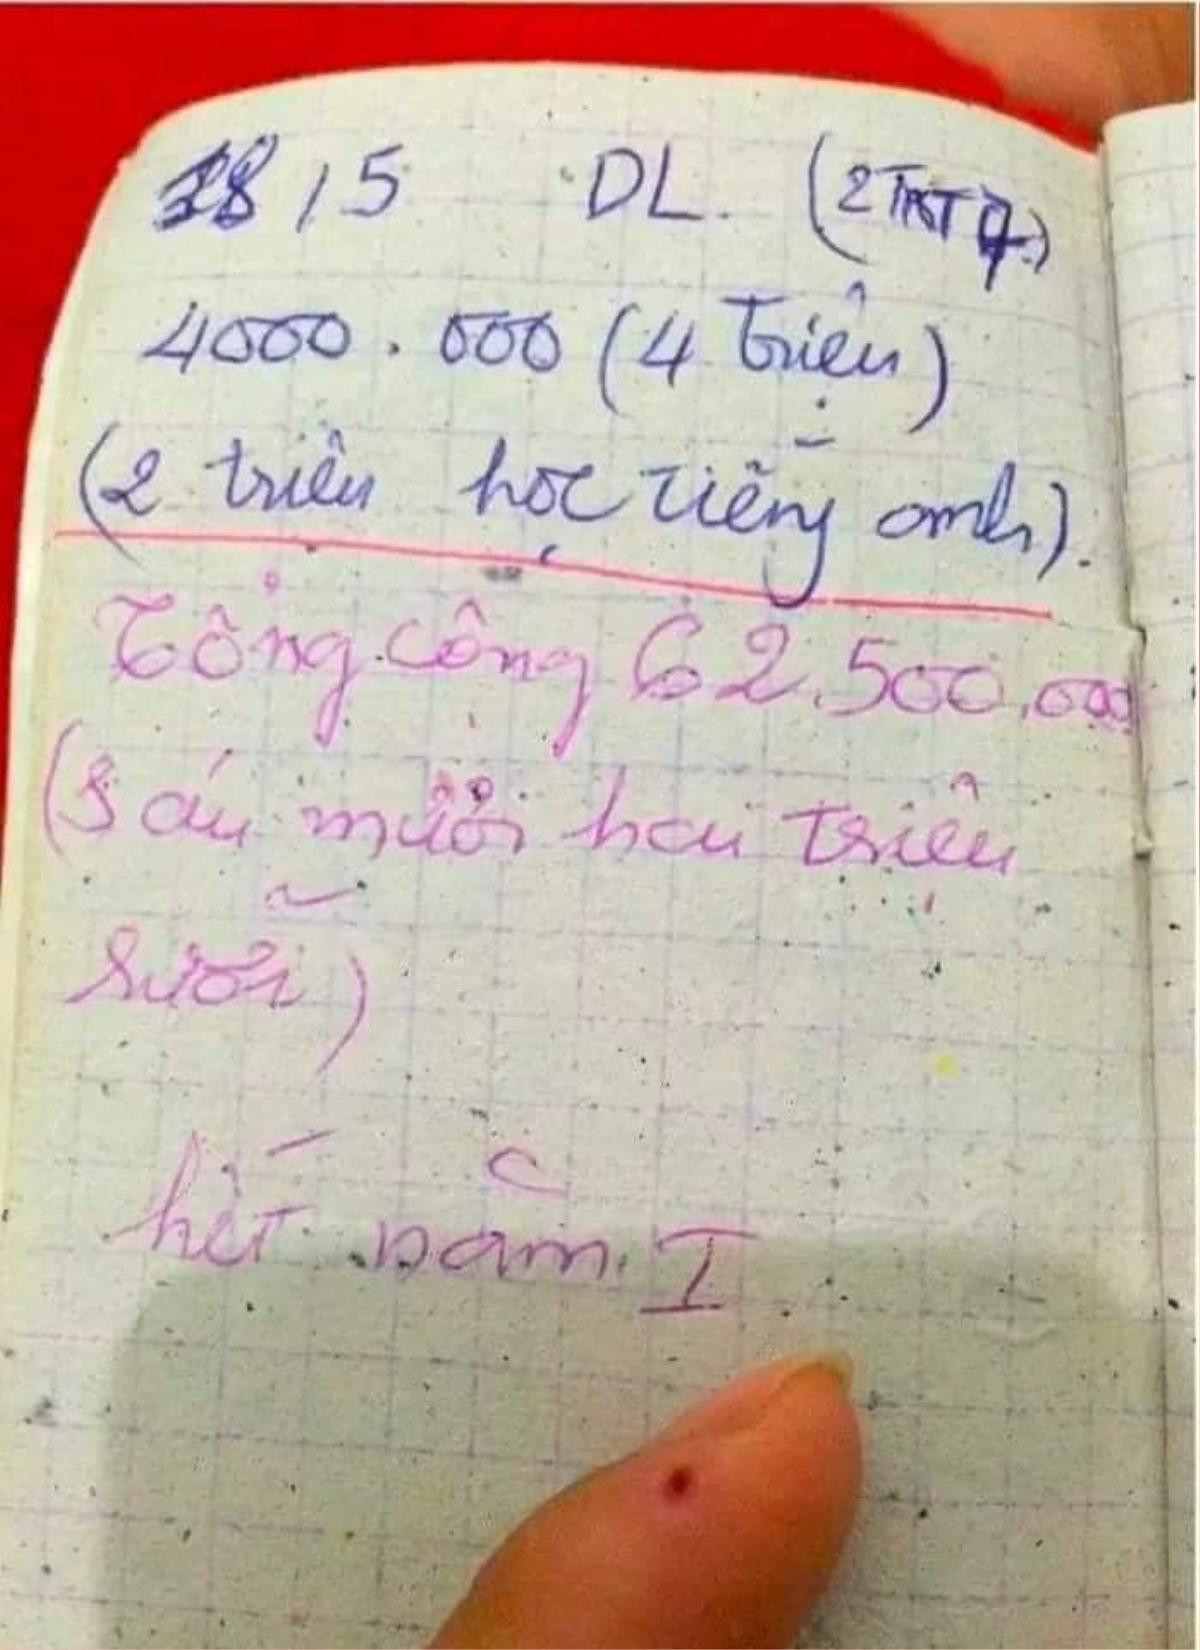 18/5 DL. (2 THT 7.)
4000.000 (4 triệu)
(2 triệu học tiếng anh).
Tổng cộng 62.500.000
(sáu mươi hai triệu
rưỡi)
hết năm I